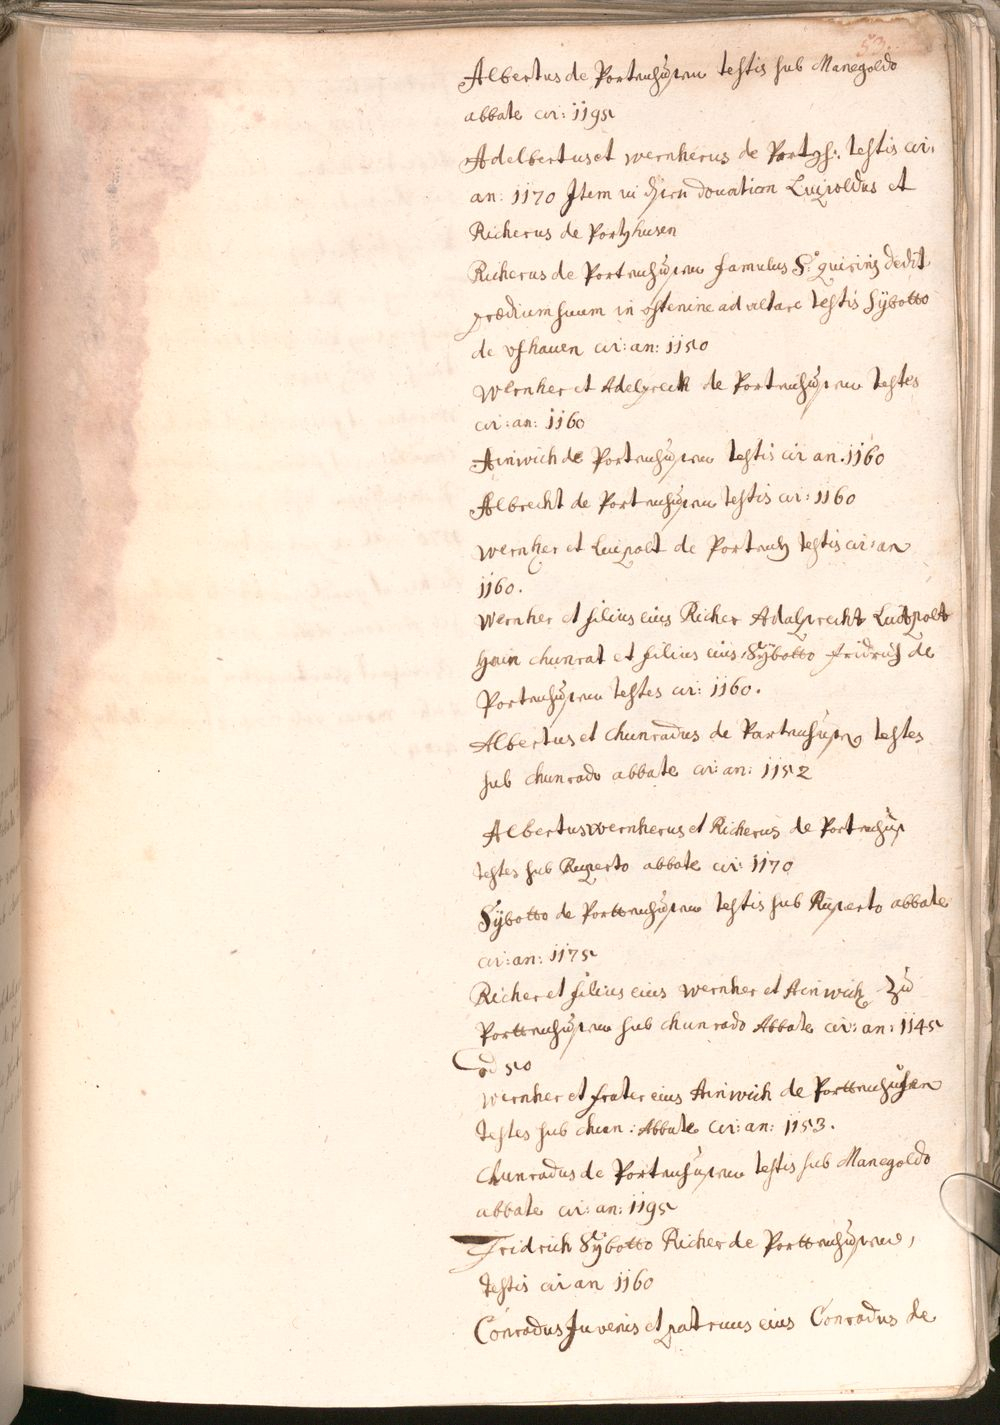 53.
Albertus de Portenhusen testis sub Manegoldo
abbate cir: 1195
Adelbertus et wernherus de Portzh: testis cir:
an: 1170 Item in donation Luipoldus et
Richerus de Portzhusen
Richerus de Portenhusen famulus S: quirinj dedit
prædium suum in ostenine ad altare testis Sÿbotto
de ushauen cir: an: 1150
wernher et Adelpreht de Portenhusen testes
cir: an: 1160
Ainwich de Portenhusen testis cir an. 1160
Albrecht de Portenhusen testis cir: 1160
wernher et Luipolt de Portenh testis cir: an
1160.
wernher et filius eius Richer Adalprecht Luitpolt
hain chunrat et filius eius Sÿbotto fridrich de
Portenhusen testes cir: 1160.
Albertus et chunradus de Partenhusen testes
sub chunrado abbate cir: an: 1152
Albertus wernherus et Richerus de Portenhus
testes sub Ruperto abbate cir: 1170
Sÿbotto de Porttenhusen testis sub Ruperto abbate
cir: an: 1175
Richer et filius eius wernher et Ainwich zu
Porttenhusen sub chunrado Abbate cir: an: 1145
od 50
wernher et frater eius Ainwich de Porttenhusen
testes sub chun: Abbate cir: an: 1153.
chunradus de Portenhusen testis sub Manegoldo
abbate cir: an: 1195
Fridrich Sÿbotto Richer de Porttenhusen,
testis cir an 1160
Conradus Juvenis et patruus eius Conradus de